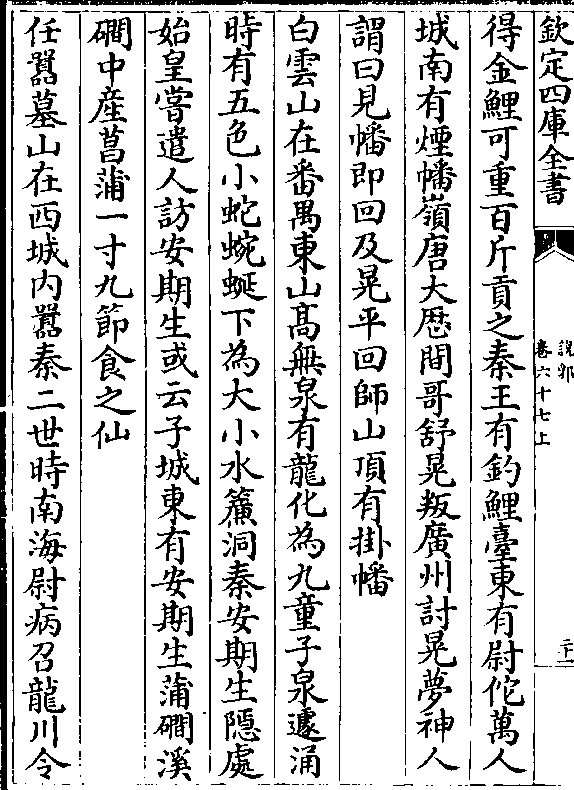 欽定四庫全書
說郛
卷六十七上
二十一
得金鯉可重百斤貢之秦王有釣鯉臺東有尉佗萬人
城南有煙幡嶺唐大厯間哥舒晃叛廣州討晃夢神人
謂曰見幡即回及晃平回師山頂有掛幡
白雲山在番禺東山髙無泉有龍化為九童子泉遽涌
時有五色小蛇蜿蜒下為大小水簾洞秦安期生隠處
始皇嘗遣人訪安期生或云子城東有安期生蒲磵溪
磵中産菖蒲一寸九節食之仙
任囂墓山在西城内囂秦二世時南海尉病召龍川令